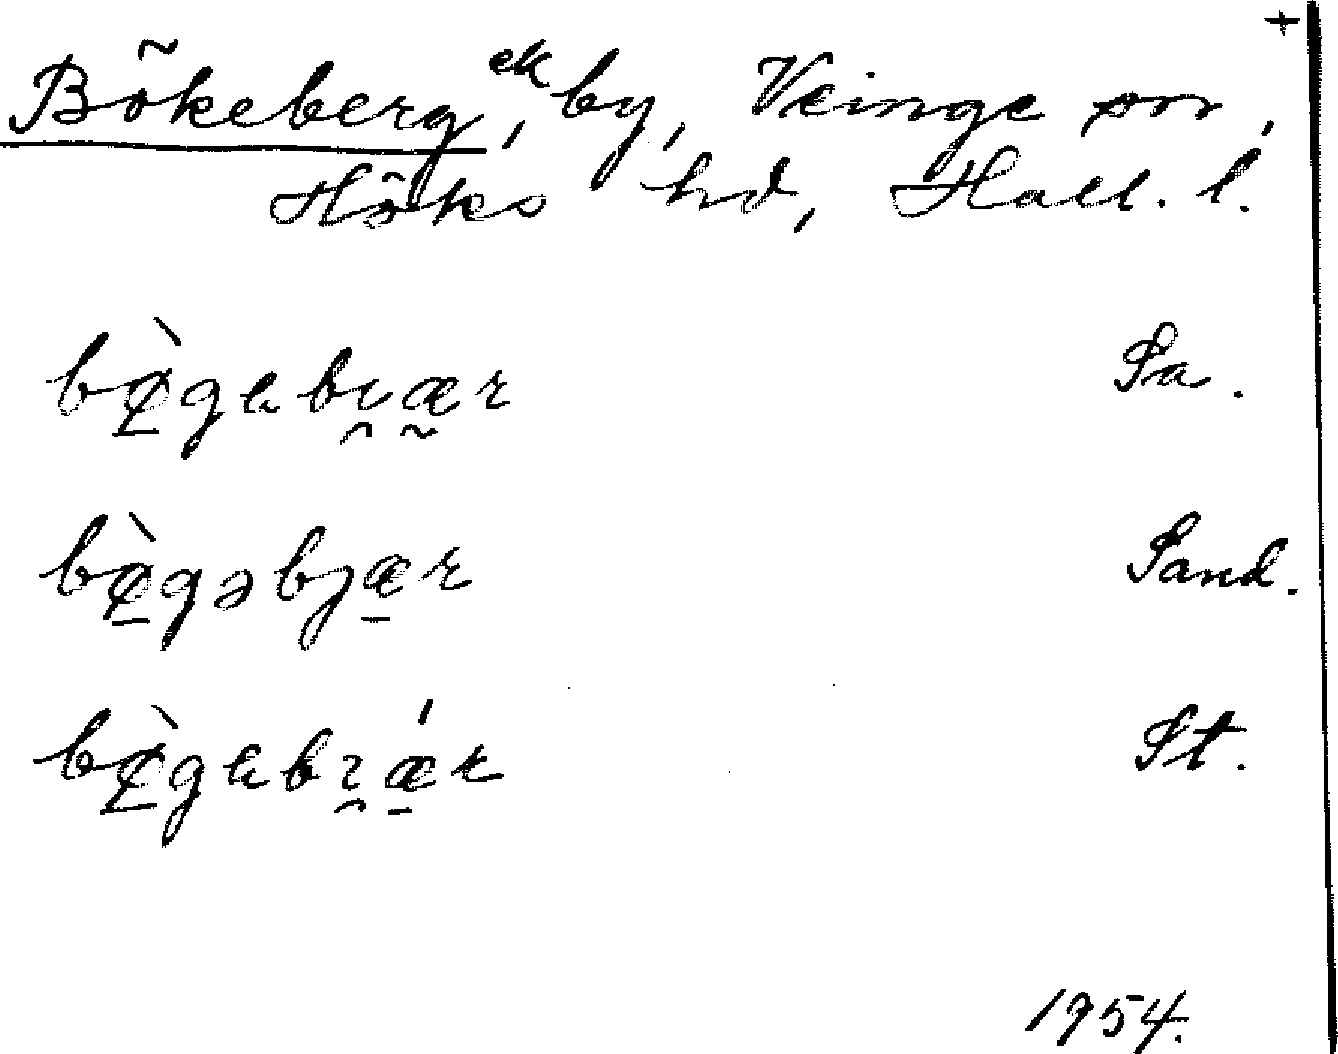 +
Bökeberg, ek by, Veinge sn,
Höks hd, Hall. l.
bø̀gabi̯ær Sa.
bø̀gəbjær Sand.
bø̀gabi̯ǽr St.
1954.